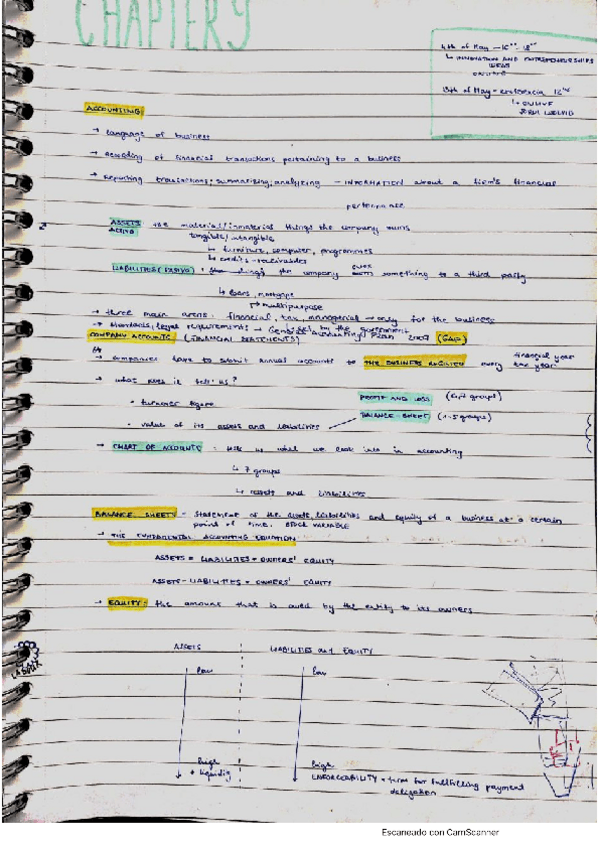 CHAPTER 9
4th of May - 16:00 - 18:00
↳ INNOVATION AND ENTREPRENEURSHIPS
IDEAS
18th of May - conferencia
↳ ONLINE
ACCOUNTING:
→ language of business
→ recording of financial transactions pertaining to a business
→ reporting transactions: summarizing, analyzing - INFORMATION about a firm's financial
performance
ASSETS the material/inmaterial things the company owns
ACTIVO tangible/intangible
↳ furniture, computer, programmes
↳ credits - receivables
LIABILITIES (PASIVO): the things the company owes something to a third party
↳ loans, mortgage
↳ multipurpose
→ three main areas: financial, tax, managerial → only for the business
→ standards, legal requirements → set by the government
General Accounting Plan 2007 (GAP)
COMPANY ACCOUNTS (FINANCIAL STATEMENTS)
→ companies have to submit annual accounts to THE BUSINESS REGISTER every financial year
tax year
→ what does it tell us?
PROFIT AND LOSS (6-7 groups)
• turnover figure
BALANCE SHEET (1-5 groups)
• value of its assets and liabilities
→ CHART OF ACCOUNTS: tells us what we look into in accounting
↳ 7 groups
↳ assets and liabilities
BALANCE SHEET - statement of the assets, liabilities and equity of a business at a certain
point of time. STOCK VARIABLE
→ THE FUNDAMENTAL ACCOUNTING EQUATION
ASSETS = LIABILITIES + OWNERS' EQUITY
ASSETS - LIABILITIES = OWNERS' EQUITY
→ EQUITY: the amount that is owed by the entity to its owners
ASSETS LIABILITIES and EQUITY
low low
high high
+ liquidity ENFORCEABILITY = term for fulfilling payment
obligation
Escaneado con CamScanner